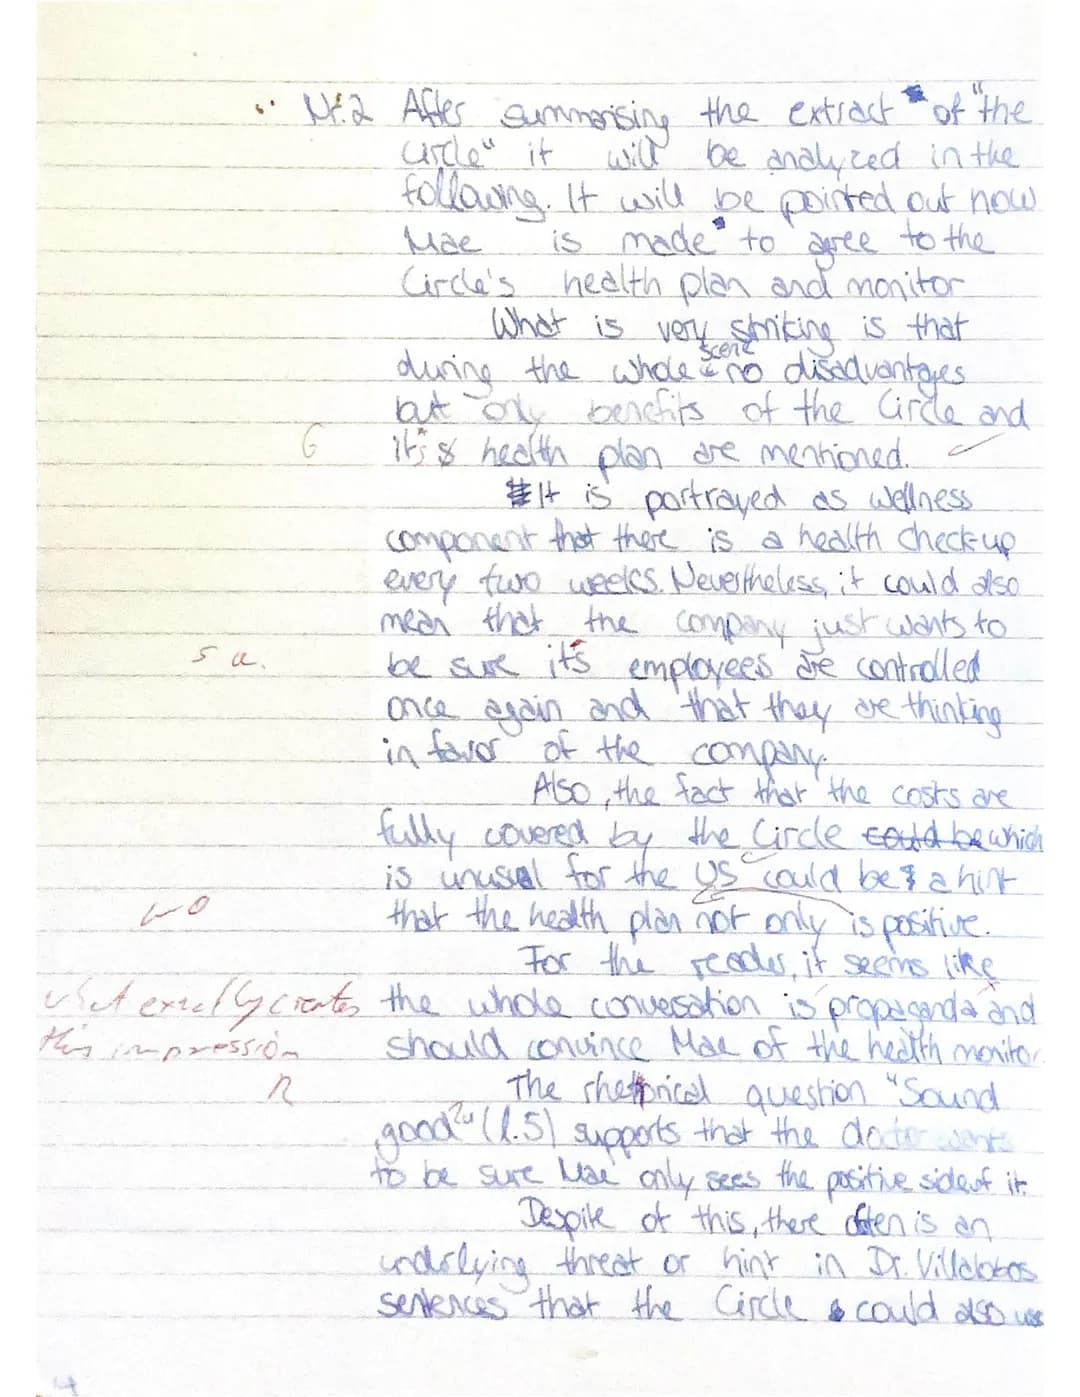 Nr.2 After summarising the extract of "the
Circle" it will be analyzed in the
following. It will be pointed out how
Mae is made to agree to the
Circle's health plan and monitor
What is very striking is that
scene
during the whole no disadvantages
but only benefits of the Circle and
G it's health plan are mentioned.
It is portrayed as wellness
component that there is a health check-up
every two weeks. Nevertheless, it could also
mean that the company just wants to
s.u. be sure it's employees are controlled
once again and that they are thinking
in favor of the company.
Also, the fact that the costs are
fully covered by the Circle could be which
is unusal for the US could be a hint
that the health plan not only is positive.
For the reader, it seems like
what exactly creates the whole conversation is propaganda and
this impression should convince Mae of the health monitor.
R The rhetorical question "Sound
good?" (l.5) supports that the doctor wants
to be sure Mae only sees the positive side of it.
Despite of this, there often is an
underlying threat or hint in Dr. Villalobos
sentences that the Circle could also use
4